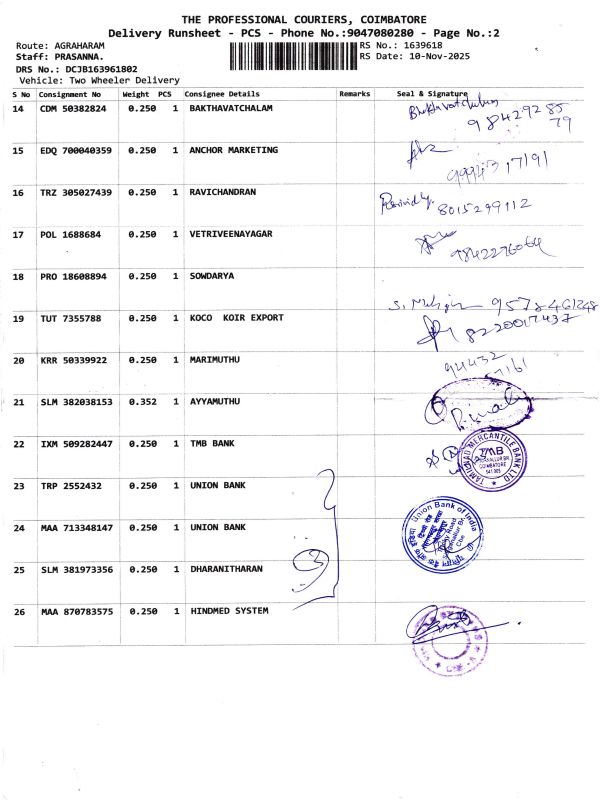 THE PROFESSIONAL COURIERS, COIMBATORE
Delivery Runsheet - PCS - Phone No.:9047080280 - Page No.:2
Route: AGRAHARAM RS No.: 1639618
Staff: PRASANNA. RS Date: 10-Nov-2025
DRS No.: DCJB163961802
Vehicle: Two Wheeler Delivery
S No Consignment No Weight PCS Consignee Details Remarks Seal & Signature
14 CDM 50382824 0.250 1 BAKTHAVATCHALAM
98429285
79
15 EDQ 700040359 0.250 1 ANCHOR MARKETING
9994317191
16 TRZ 305027439 0.250 1 RAVICHANDRAN
8015299112
17 POL 1688684 0.250 1 VETRIVEENAYAGAR
9842276064
18 PRO 18608894 0.250 1 SOWDARYA
9578461248
19 TUT 7355788 0.250 1 KOCO KOIR EXPORT
8220017437
20 KRR 50339922 0.250 1 MARIMUTHU
94432
21 SLM 382038153 0.352 1 AYYAMUTHU
22 IXM 509282447 0.250 1 TMB BANK
TAMILNAD MERCANTILE BANK LTD
TMB
COIMBATORE
23 TRP 2552432 0.250 1 UNION BANK
24 MAA 713348147 0.250 1 UNION BANK
Union Bank of India
25 SLM 381973356 0.250 1 DHARANITHARAN
3
26 MAA 870783575 0.250 1 HINDMED SYSTEM